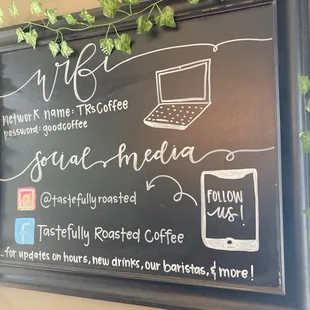 wifi
network name: TRsCoffee
password: goodcoffee
social media
@tastefullyroasted
Tastefully Roasted Coffee
FOLLOW
US!
...for updates on hours, new drinks, our baristas, & more!